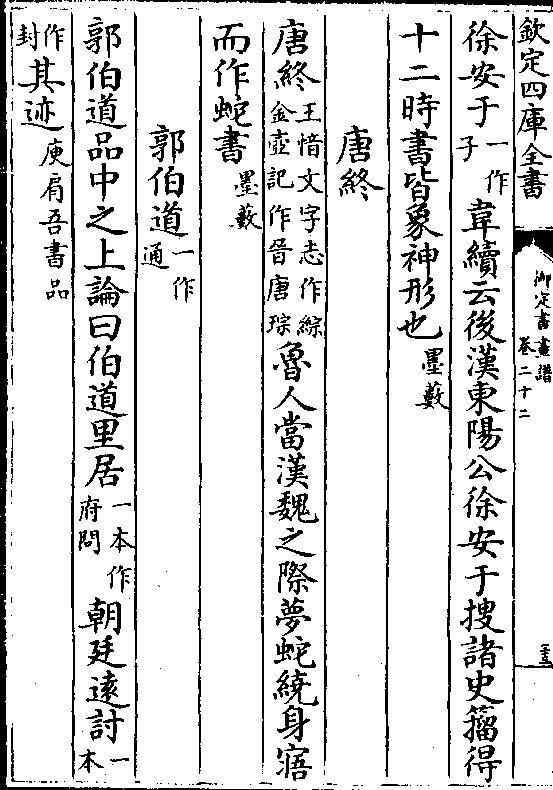 欽定四庫全書
御定書畫譜
卷二十二
二十三
徐安于一作子韋續云後漢東陽公徐安于搜諸史籀得
十二時書皆象神形也墨藪
唐終
唐終王愔文字志作綜金壺記作晉唐琮魯人當漢魏之際夢蛇繞身寤
而作蛇書墨藪
郭伯道一作通
郭伯道品中之上論曰伯道里居一本作府問朝廷遠討一本
作封其迹庾肩吾書品